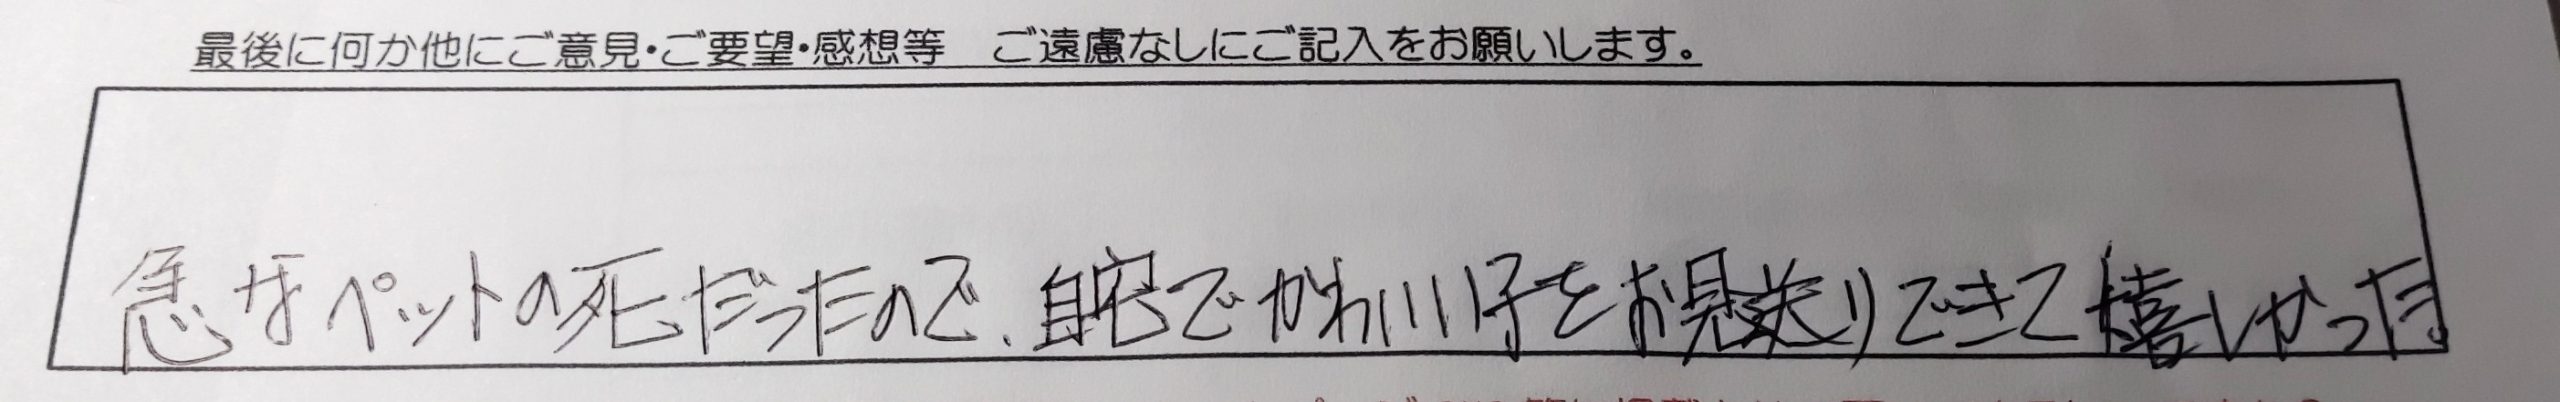 最後に何か他にご意見・ご要望・感想等　ご遠慮なしにご記入をお願いします。
急なペットの死だったので、自宅でかわいい子をお見送りできて嬉しかった。